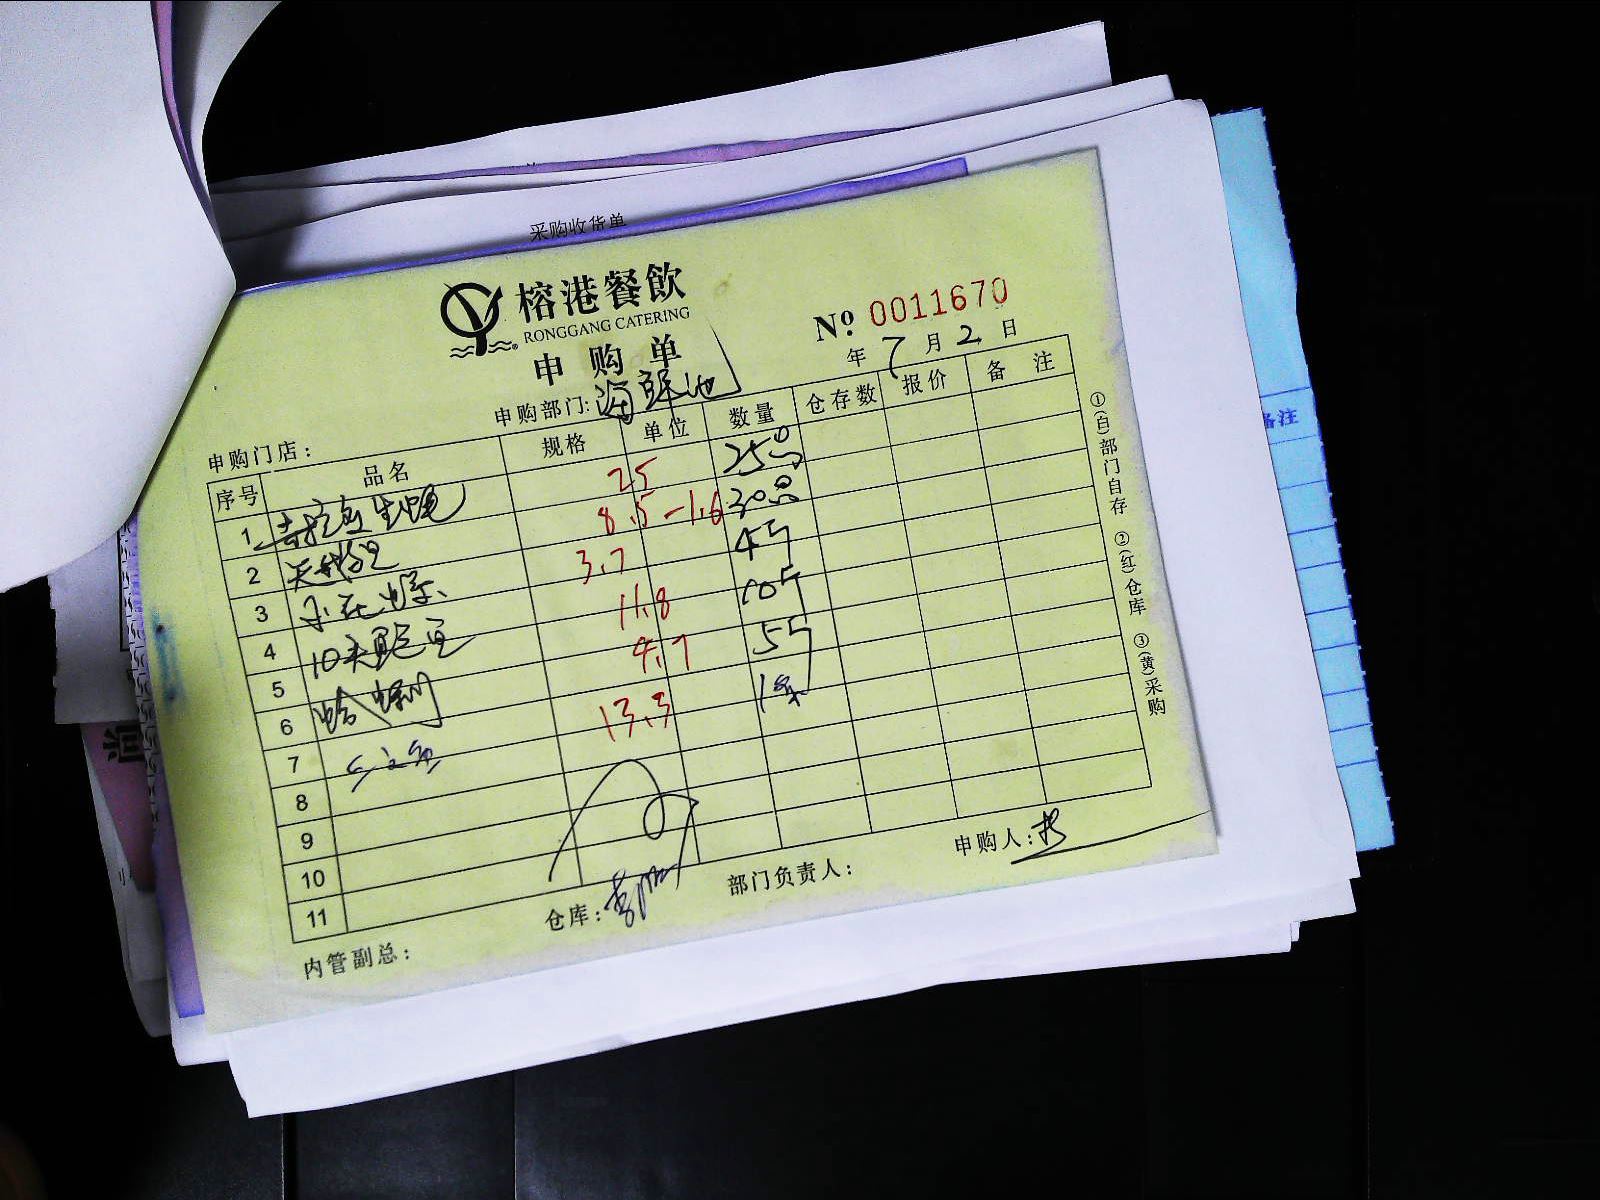 采购收货单
榕港餐飲
RONGGANG CATERING
申购单
№ 0011670
年 7 月 2 日
申购门店：
申购部门: 海鲜池
序号 品名 规格 单位 数量 仓存数 报价 备注
1 吉拉多生蚝 25 25只
2 8.5-1.6 30只
3 3.7 4斤
4 10头鲍鱼 11.8 10斤
5 蛤蜊 4.7 5斤
6 13.3 1条
7
8
9
10
11
内管副总：
仓库：
部门负责人：
申购人：
①(白)部门自存 ②(红)仓库 ③(黄)采购
备注